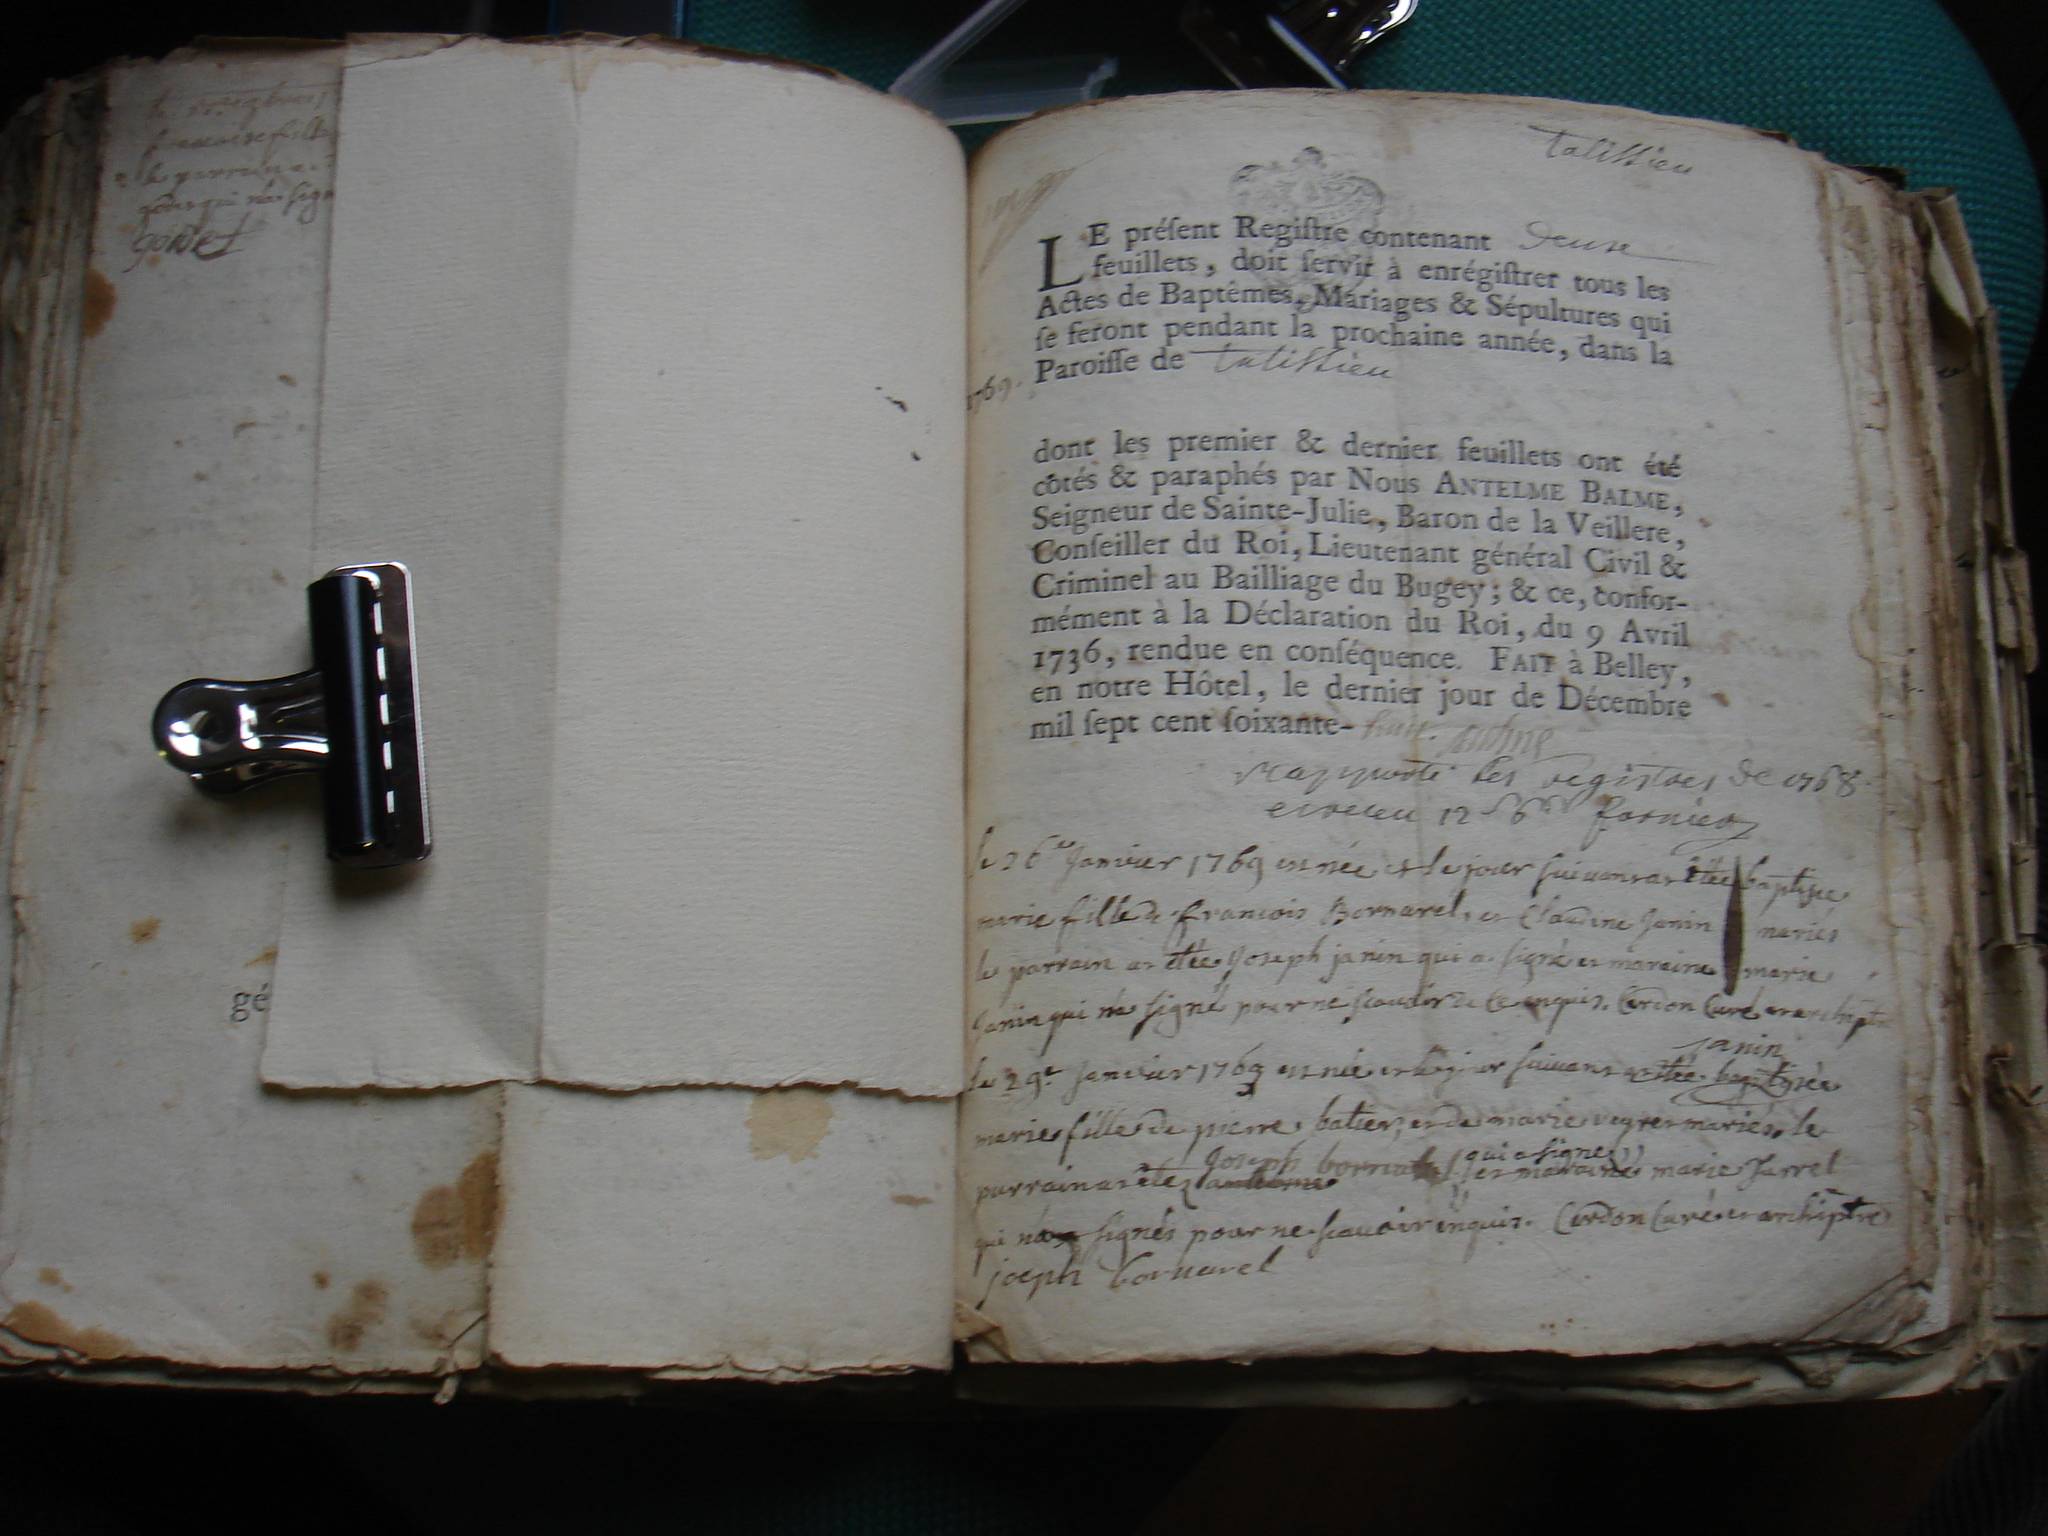 françoise fille
le parrain a
qui n'a sign
gonet
gé
talissieu
LE préſent Regiſtre contenant deuse
feuillets, doit ſervir à enrégiſtrer tous les
Actes de Baptêmes, Mariages & Sépultures qui
ſe feront pendant la prochaine année, dans la
Paroiſſe de talissieu
1769.
dont les premier & dernier feuillets ont été
côtés & paraphés par Nous ANTELME BALME,
Seigneur de Sainte-Julie, Baron de la Veillere,
Conſeiller du Roi, Lieutenant général Civil &
Criminel au Bailliage du Bugey; & ce, confor-
mément à la Déclaration du Roi, du 9 Avril
1736, rendue en conſéquence. FAIT à Belley,
en notre Hôtel, le dernier jour de Décembre
mil ſept cent ſoixante-huit.
rapporté les registres de 1768
12 fornier
le 26e janvier 1769 est née et le jour suivant at étée baptisée
marie fille de françois Bornarel, et Claudine Janin mariés
le parrain at étée Joseph janin qui a signé et maraine marie
Janin qui na signé pour ne scavoir de ce enquis. Cerdon Curé et archiptre
janin
le 29e janvier 1769 est née et le jour suivant at étée baptisée
marie fille de pierre batier, et de marie veyret mariés, le
parrain at étez Joseph bornarel qui a signé et maraine marie Jarrel
qui na signés pour ne scavoir enquis. Cerdon Curé et archiptre
joseph bornarel